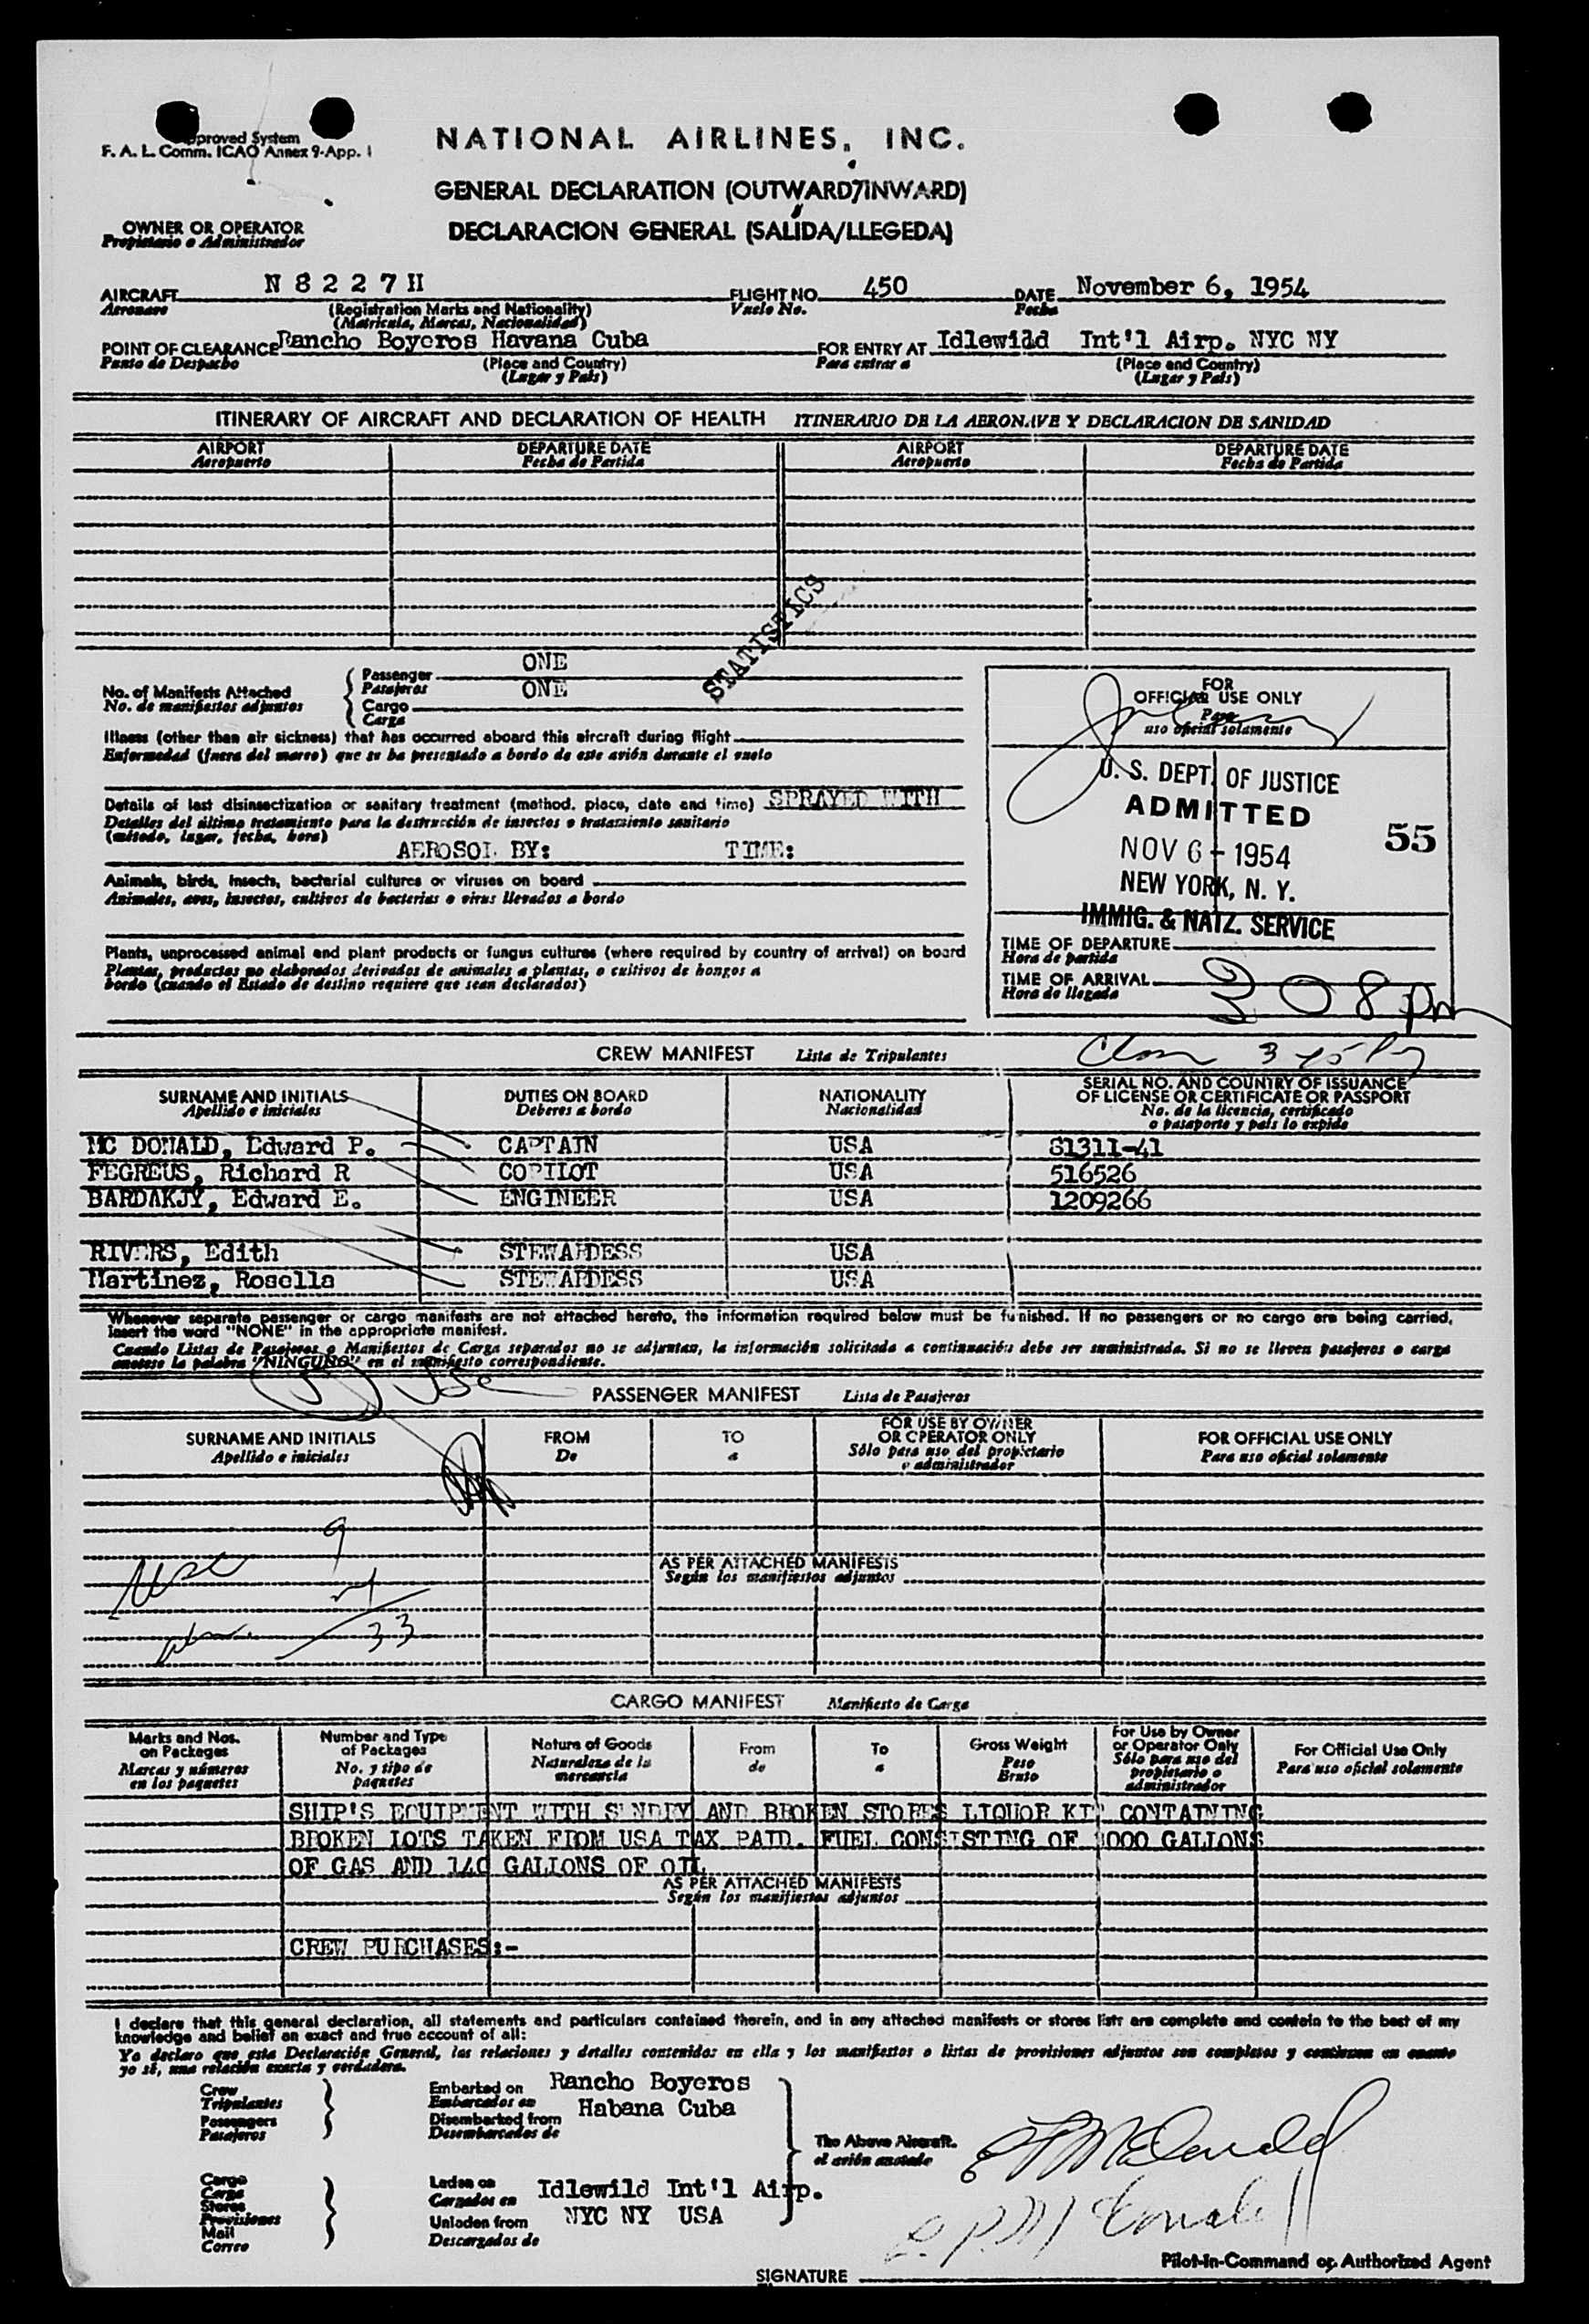 proved System
F. A. L. Comm. ICAO Annex 9-App. I
NATIONAL AIRLINES, INC.
GENERAL DECLARATION (OUTWARD/INWARD)
OWNER OR OPERATOR
Propietario o Administrador
DECLARACION GENERAL (SALIDA/LLEGEDA)
AIRCRAFT N 8 2 2 7 H FLIGHT NO. 450 DATE November 6, 1954
Aeronave (Registration Marks and Nationality) Vuelo No. Fecha
(Matricula, Marcas, Nacionalidad)
POINT OF CLEARANCE Rancho Boyeros Havana Cuba FOR ENTRY AT Idlewild Int'l Airp. NYC NY
Punto de Despacho (Place and Country) Para entrar a (Place and Country)
(Lugar y Pais) (Lugar y Pais)
ITINERARY OF AIRCRAFT AND DECLARATION OF HEALTH ITINERARIO DE LA AERONAVE Y DECLARACION DE SANIDAD
AIRPORT DEPARTURE DATE AIRPORT DEPARTURE DATE
Aeropuerto Fecha de Partida Aeropuerto Fecha de Partida
STATISTICS
No. of Manifests Attached
No. de manifiestos adjuntos
Passenger ONE
Pasajeros ONE
Cargo
Carga
Illness (other than air sickness) that has occurred aboard this aircraft during flight
Enfermedad (fuera del mareo) que se ha presentado a bordo de este avión durante el vuelo
Details of last disinsectization or sanitary treatment (method, place, date and time) SPRAYED WITH
Detalles del último tratamiento para la destrucción de insectos o tratamiento sanitario
(método, lugar, fecha, hora)
AEROSOL BY: TIME:
Animals, birds, insects, bacterial cultures or viruses on board
Animales, aves, insectos, cultivos de bacterias o virus llevados a bordo
Plants, unprocessed animal and plant products or fungus cultures (where required by country of arrival) on board
Plantas, productos no elaborados derivados de animales a plantas, o cultivos de hongos a
bordo (cuando el Estado de destino requiere que sean declarados)
FOR
OFFICIAL USE ONLY
Para
uso oficial solamente
U. S. DEPT. OF JUSTICE
ADMITTED
55
NOV 6 - 1954
NEW YORK, N. Y.
IMMIG. & NATZ. SERVICE
TIME OF DEPARTURE
Hora de partida
TIME OF ARRIVAL 2 08 pm
Hora de llegada
CREW MANIFEST Lista de Tripulantes
SURNAME AND INITIALS DUTIES ON BOARD NATIONALITY SERIAL NO. AND COUNTRY OF ISSUANCE
Apellido e iniciales Deberes a bordo Nacionalidad OF LICENSE OR CERTIFICATE OR PASSPORT
No. de la licencia, certificado
o pasaporte y pais lo expide
MC DONALD, Edward P. CAPTAIN USA S1311-41
FEGREUS, Richard R COPILOT USA 516526
BARDAKJY, Edward E. ENGINEER USA 1209266
RIVERS, Edith STEWARDESS USA
Martinez, Rosella STEWARDESS USA
Whenever separate passenger or cargo manifests are not attached hereto, the information required below must be furnished. If no passengers or no cargo are being carried,
insert the word "NONE" in the appropriate manifest.
Cuando Listas de Pasajeros o Manifiestos de Carga separados no se adjuntan, la información solicitada a continuación debe ser suministrada. Si no se lleven pasajeros o carga
anotese la palabra "NINGUNO" en el manifiesto correspondiente.
PASSENGER MANIFEST Lista de Pasajeros
SURNAME AND INITIALS FROM TO FOR USE BY OWNER FOR OFFICIAL USE ONLY
Apellido e iniciales De a OR OPERATOR ONLY Para uso oficial solamente
Sólo para uso del propietario
o administrador
9
AS PER ATTACHED MANIFESTS
Según los manifiestos adjuntos
33
CARGO MANIFEST Manifiesto de Carga
Marks and Nos. Number and Type Nature of Goods From To Gross Weight For Use by Owner For Official Use Only
on Packages of Packages Naturaleza de la de a Peso or Operator Only Para uso oficial solamente
Marcas y números No. y tipo de mercancia Bruto Sólo para uso del
en los paquetes paquetes propietario o
administrador
SHIP'S EQUIPMENT WITH SUNDRY AND BROKEN STORES LIQUOR KIT CONTAINING
BROKEN LOTS TAKEN FROM USA TAX PAID. FUEL CONSISTING OF 000 GALLONS
OF GAS AND 140 GALLONS OF OIL
AS PER ATTACHED MANIFESTS
Según los manifiestos adjuntos
CREW PURCHASES:-
I declare that this general declaration, all statements and particulars contained therein, and in any attached manifests or stores lists are complete and contain to the best of my
knowledge and belief an exact and true account of all:
Yo declaro que esta Declaración General, las relaciones y detalles contenidos en ella y los manifiestos o listas de provisiones adjuntos son completos y contienen en cuanto
yo sé, una relación exacta y verdadera.
Crew Embarked on Rancho Boyeros
Tripulantes Embarcados en
Passengers Disembarked from Habana Cuba
Pasajeros Desembarcados de
The Above Aircraft.
el avión anotado
E P McDonald
Cargo Laden on Idlewild Int'l Airp.
Carga Cargados en
Stores
Provisiones Unladen from NYC NY USA
Mail Descargados de
Correo
E. P. McDonald
Pilot-In-Command or Authorized Agent
SIGNATURE